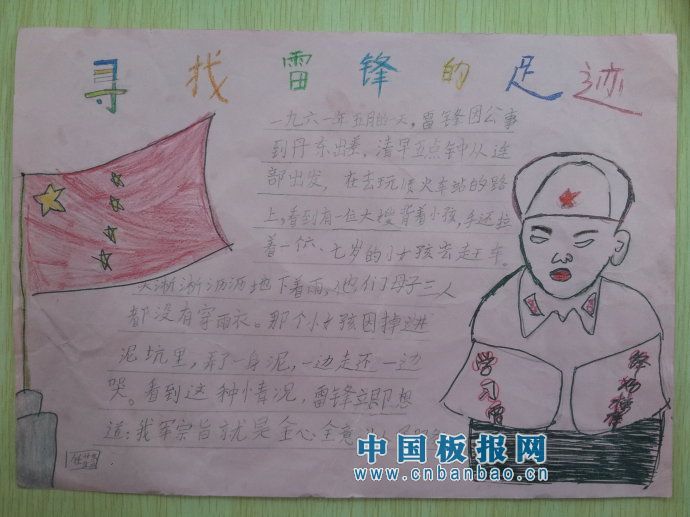 寻找雷锋的足迹
一九六一年五月的一天，雷锋因公事
到丹东出差，清早五点钟从连
部出发，在去玩顺火车站的路
上，看到有一位大嫂背着小孩，手还拉
着一个六、七岁的小女孩去赶车。
天淅淅沥沥地下着雨，他们母子三人
都没有穿雨衣。那个小女孩因掉进
泥坑里，弄了一身泥，一边走还一边
哭。看到这种情况，雷锋立即想
道：我军宗旨就是全心全意
学习雷
锋好榜样
中国板报网
www.cnbanbao.cn